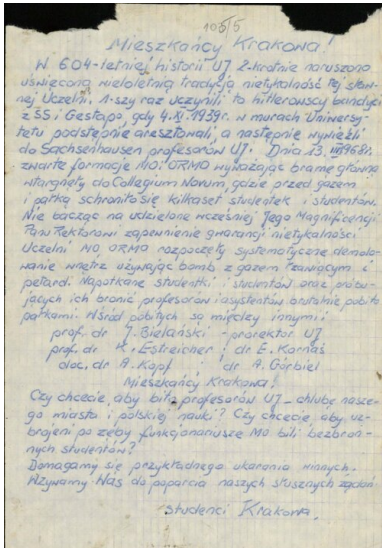 105/5
Mieszkańcy Krakowa!
W 604-letniej historii UJ 2-krotnie naruszono
uświęconą wieloletnią tradycją nietykalność tej sław-
nej Uczelni. 1-szy raz uczynili to hitlerowscy bandyci
z SS i Gestapo, gdy 4.XI.1939r. w murach Uniwersy-
tetu podstępnie aresztowali, a następnie wywieźli
do Sachsenhausen profesorów UJ. Dnia 13.III.1968r.
zwarte formacje MO i ORMO wyważając bramę główną
wtargnęły do Collegium Novum, gdzie przed gazem
i pałką schroniło się kilkaset studentek i studentów.
Nie bacząc na udzielone wcześniej Jego Magnificencji
Panu Rektorowi zapewnienie gwarancji nietykalności
Uczelni MO i ORMO rozpoczęły systematyczne demolo-
wanie wnętrz używając bomb z gazem łzawiącym i
petard. Napotkane studentki i studentów oraz próbu-
jących ich bronić profesorów i asystentów brutalnie pobito
pałkami. Wśród pobitych są między innymi:
prof. dr J. Bielański - prorektor UJ
prof. dr K. Estreicher i dr E. Kornaś
doc. dr A. Kopf i dr A. Górbiel
Mieszkańcy Krakowa!
Czy chcecie, aby bito profesorów UJ - chlubę nasze-
go miasta i polskiej nauki? Czy chcecie aby uz-
brojeni po zęby funkcjonariusze MO bili bezbron-
nych studentów?
Domagamy się przykładnego ukarania winnych.
Wzywamy Was do poparcia naszych słusznych żądań.
studenci Krakowa.